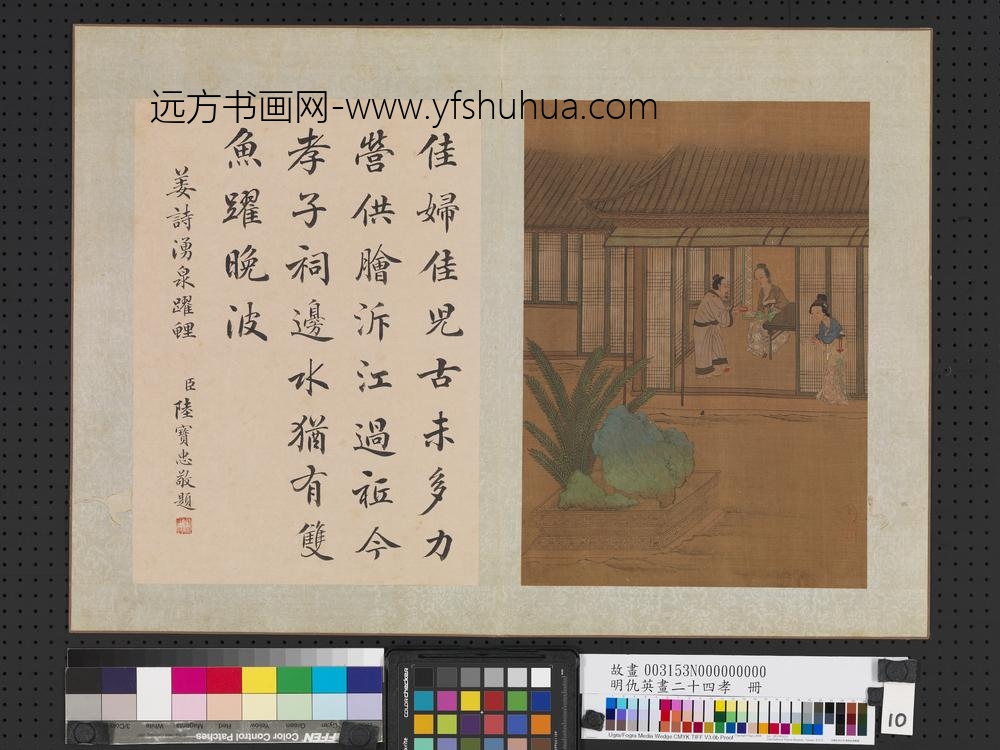 远方书画网-www.yfshuhua.com
佳婦佳兒古未多力
營供膾泝江過祗今
孝子祠邊水猶有雙
魚躍晚波
姜詩湧泉躍鯉
臣陸寶忠敬題
故畫 003153N000000000
明仇英畫二十四孝 冊
10
colorchecker
FFEN Color Control Patches
Ugra/Fogra Media Wedge CMYK TIFF V3.0b Proof